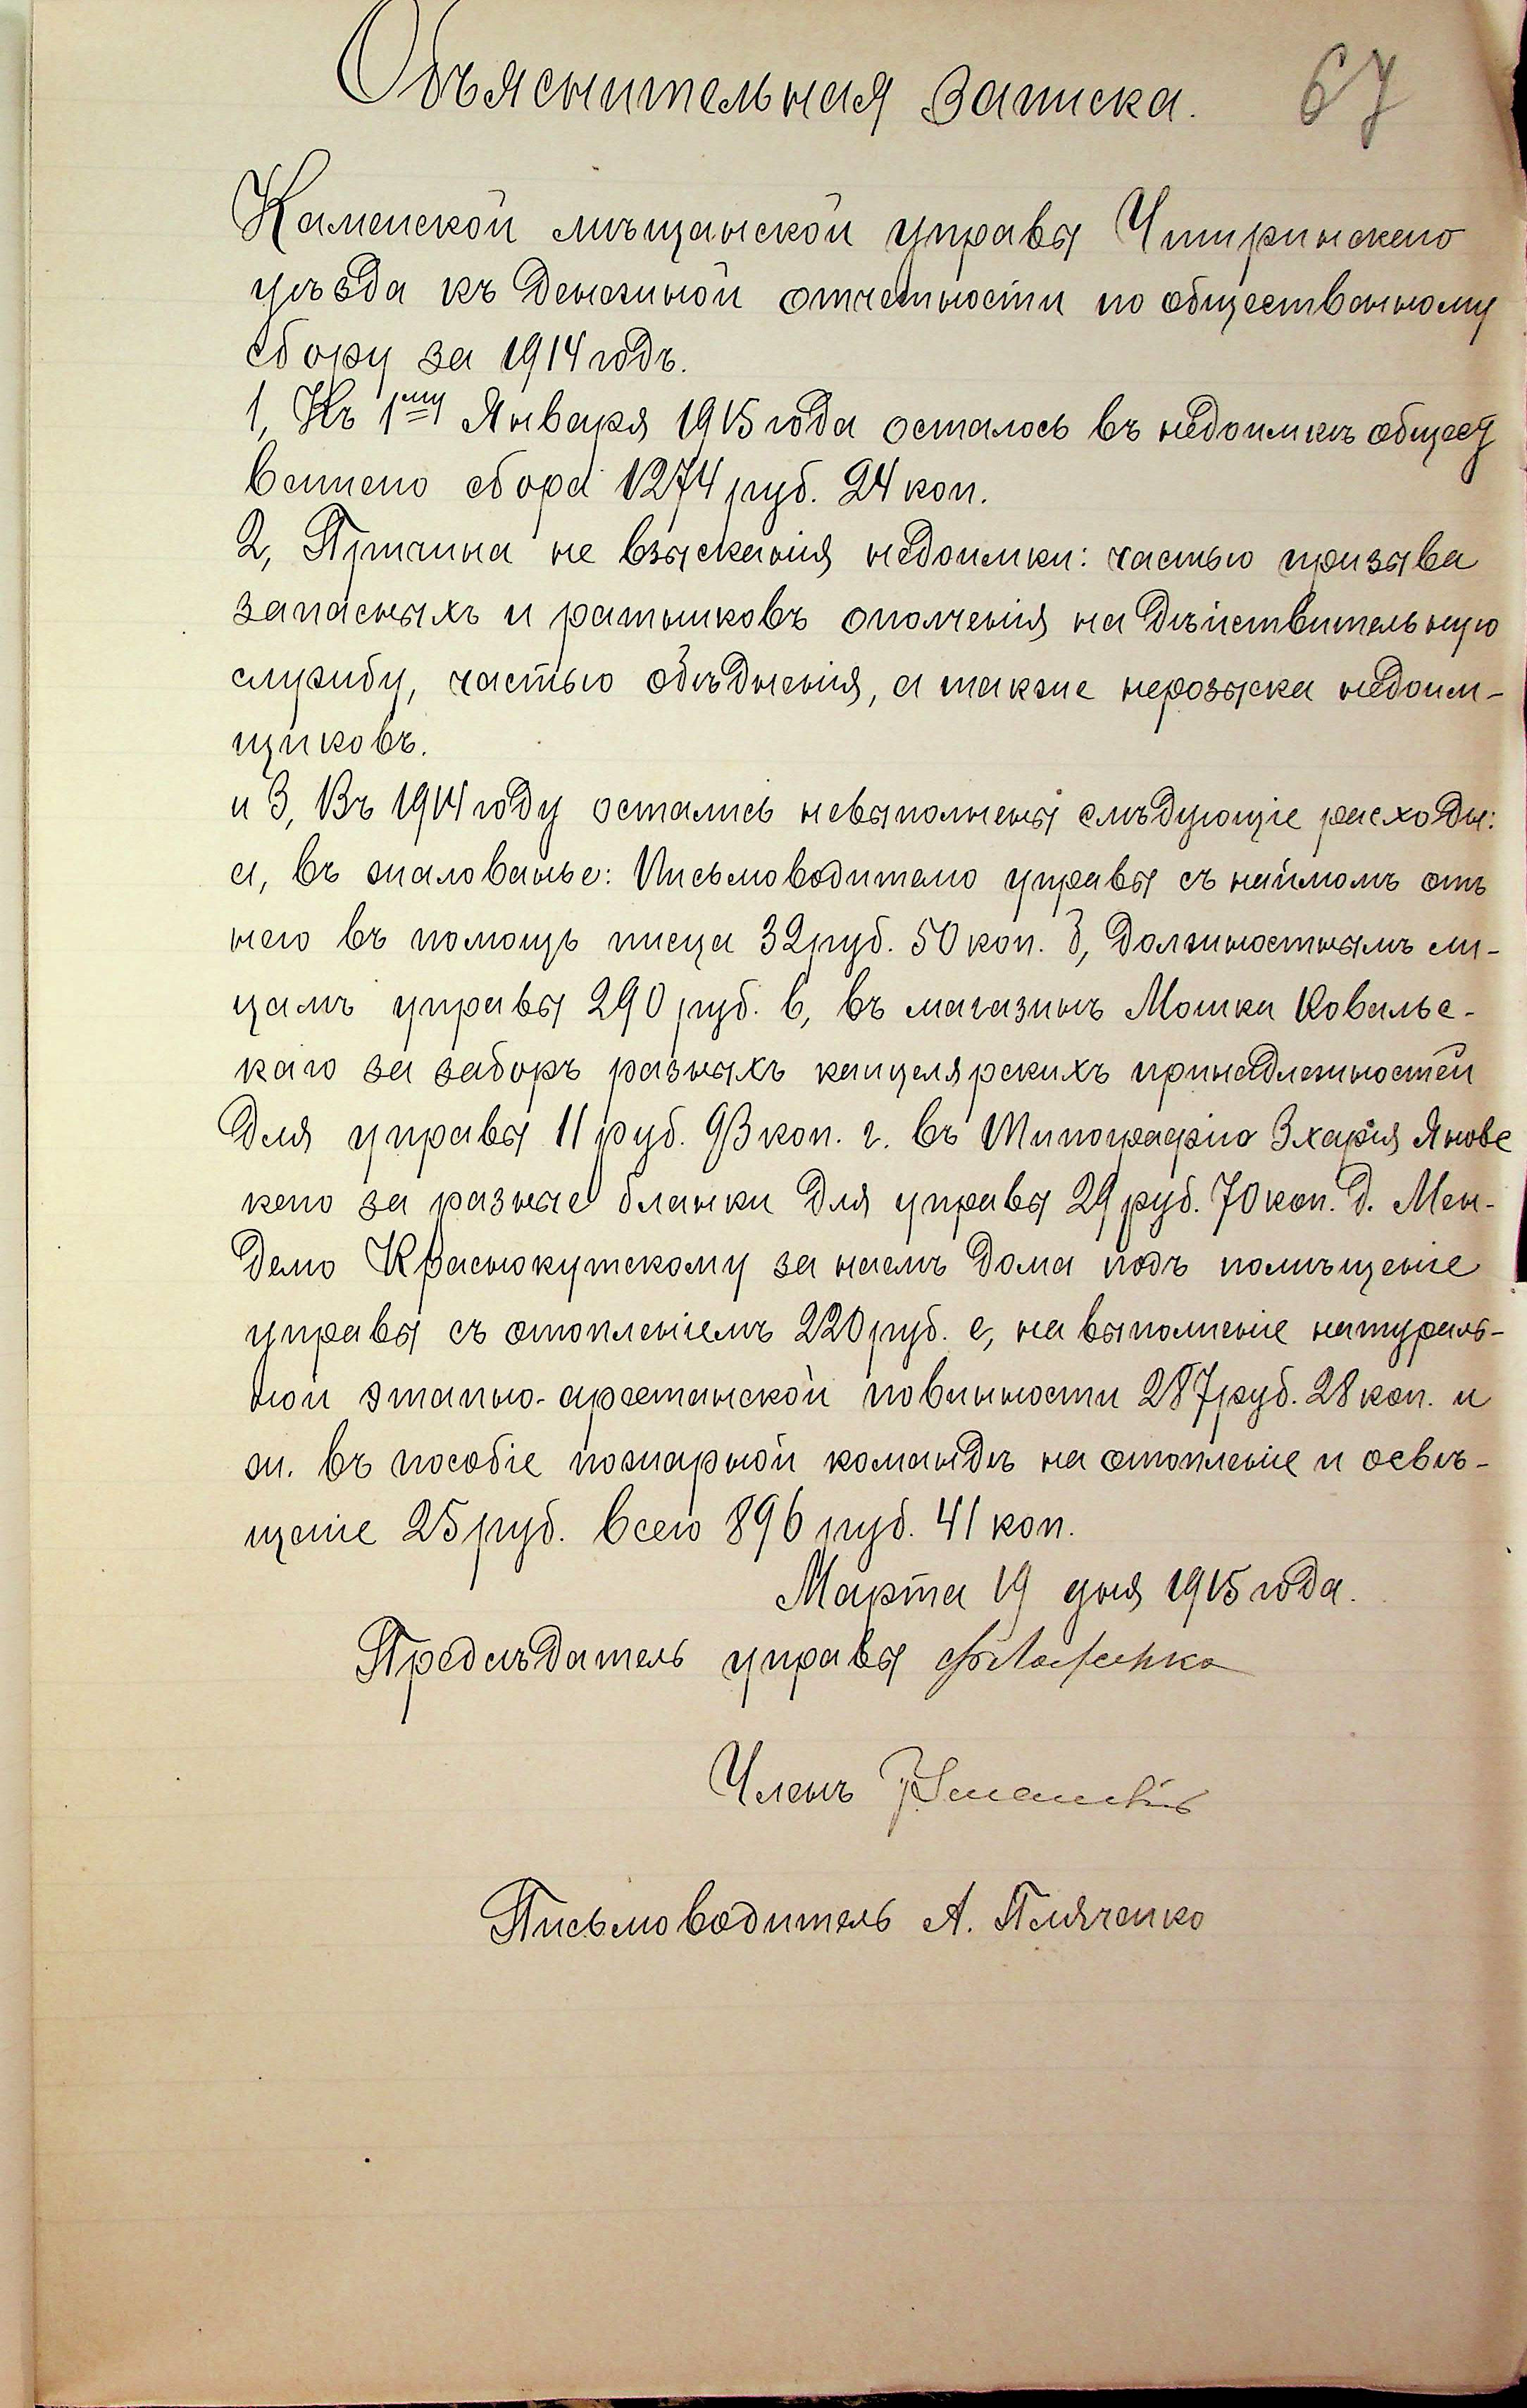 Объяснительная Записка. 67
Каменской мѣщанской управы Чигиринскаго
уѣзда къ денежной отчетности по общественному
сбору за 1914 годъ.
1, Къ 1му Января 1915 года осталось въ недоимкѣ общест
веннаго сбора 1274 руб. 24 коп.
2, Причина не взысканія недоимки: частью призыва
запасныхъ и ратниковъ ополченія на дѣйствительную
службу, частью обѣдненія, а также нерозыска недоим-
щиковъ.
и 3, Въ 1914 году остались невыполнены слѣдующіе расходы:
а, въ жалованье: Письмоводителю управы съ наймомъ отъ
него въ помощь писца 32 руб. 50 коп. б, Должностнымъ ли-
цамъ управы 290 руб. в, въ магазинъ Мошка Ковальс-
каго за заборъ разныхъ канцелярскихъ принадлежностей
для управы 11 руб. 93 коп. г. въ Типографію Зхарія Яновс
каго за разные бланки для управы 29 руб. 70 коп. д. Мен-
делю Краснокутскому за наемъ дома подъ помѣщеніе
управы съ отопленіемъ 220 руб. е, на выполненіе натураль-
ной этапно-арестанской повинности 287 руб. 28 коп. и
ж. въ пособіе пожарной командѣ на отопленіе и освѣ-
щеніе 25 руб. всего 896 руб. 41 коп.
Марта 19 дня 1915 года.
Предсѣдатель управы
Членъ
Письмоводитель А.